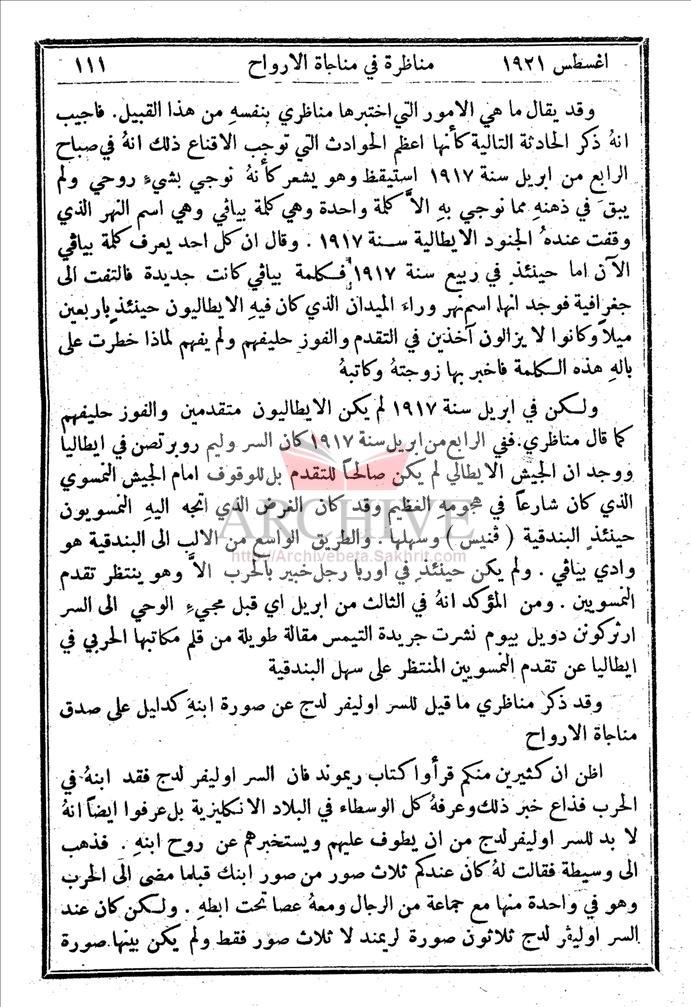 اغسطس ١٩٢١ مناظرة في مناجاة الارواح ١١١
وقد يقال ما هي الامور التي اختبرها مناظري بنفسهِ من هذا القبيل. فاجيب
انهُ ذكر الحادثة التالية كأنها اعظم الحوادث التي توجب الاقناع ذلك انهُ في صباح
الرابع من ابريل سنة ١٩١٧ استيقظ وهو يشعر كأنهُ نوجي بشيءٍ روحي ولم
يبقَ في ذهنهِ مما نوجي بهِ الاَّ كلمة واحدة وهي كلمة بياڤي وهي اسم النهر الذي
وقفت عندهُ الجنود الايطالية سنة ١٩١٧ . وقال ان كل احد يعرف كلمة بياڤي
الآن اما حينئذٍ في ربيع سنة ١٩١٧ فكلمة بياڤي كانت جديدة فالتفت الى
جغرافية فوجد انها اسم نهر وراءَ الميدان الذي كان فيهِ الايطاليون حينئذٍ باربعين
ميلاً وكانوا لا يزالون آخذين في التقدم والفوز حليفهم ولم يفهم لماذا خطرت على
بالهِ هذه الكلمة فاخبر بها زوجتهُ وكاتبهُ
ولكن في ابريل سنة ١٩١٧ لم يكن الايطاليون متقدمين والفوز حليفهم
كما قال مناظري. ففي الرابع من ابريل سنة ١٩١٧ كان السر وليم روبرتصن في ايطاليا
ووجد ان الجيش الايطالي لم يكن صالحاً للتقدم بل للوقوف امام الجيش النمسوي
الذي كان شارعاً في هجومه العظيم وقد كان الغرض الذي اتجه اليهِ النمسويون
حينئذٍ البندقية ( ڤنيس ) وسهلها . والطريق الواسع من الالب الى البندقية هو
وادي بياڤي . ولم يكن حينئذٍ في اوربا رجل خبير بالحرب الاَّ وهو ينتظر تقدم
النمسويين . ومن المؤكد انهُ في الثالث من ابريل اي قبل مجيءِ الوحي الى السر
ارثركونن دويل بيوم نشرت جريدة التيمس مقالة طويلة من قلم مكاتبها الحربي في
ايطاليا عن تقدم النمسويين المنتظر على سهل البندقية
وقد ذكر مناظري ما قيل للسر اوليفر لدج عن صورة ابنهِ كدليل على صدق
مناجاة الارواح
اظن ان كثيرين منكم قرأوا كتاب ريموند فان السر اوليفر لدج فقد ابنهُ في
الحرب فذاع خبر ذلك وعرفهُ كل الوسطاء في البلاد الانكليزية بل عرفوا ايضاً انهُ
لا بد للسر اوليفر لدج من ان يطوف عليهم ويستخبرهم عن روح ابنهِ . فذهب
الى وسيطة فقالت لهُ كان عندكم ثلاث صور من صور ابنك قبلما مضى الى الحرب
وهو في واحدة منها مع جماعة من الرجال ومعهُ عصا تحت ابطهِ . ولكن كان عند
السر اوليڤر لدج ثلاثون صورة لريمند لا ثلاث صور فقط ولم يكن بينها صورة
ARCHIVE
http://Archivebeta.Sakhrit.com